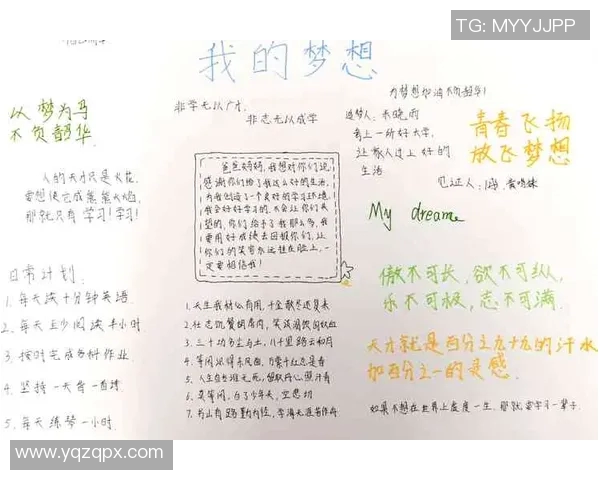 TG: MYYJJPP
我的梦想
以梦为马
不负韶华
非学无以广才,
非志无以成学
为梦想加油不负韶华!
追梦人:
考上一所好大学,
让家人过上好的
生活
见证人:
青春飞扬
放飞梦想
My dream
人的天才只是火花,
要想使它成熊熊火焰,
那就只有学习!学习!
爸爸妈妈,我想对你们说,
感谢你们给了我这么好的生活,
为我创造了一个良好的学习环境,
我会好好学习的,不会让你们失
望的,你们给予了我那么多,我
要用好成绩去回报你们,让
你们的笑容永远挂在脸上,一
定要相信我!
日常计划
1、每天读十分钟英语.
2、每天至少阅读半小时
3、按时完成各科作业
4、坚持一天背一首诗
5、每天练琴一小时.
1、天生我材必有用,千金散尽还复来
2、壮志饥餐胡虏肉,笑谈渴饮匈奴血
3、三十功名尘与土,八千里路云和月
4、等闲识得东风面,万紫千红总是春
5、人生自古谁无死,留取丹心照汗青
6、莫等闲,白了少年头,空悲切
7、书山有路勤为径,学海无涯苦作舟
傲不可长,欲不可纵,
乐不可极,志不可满.
天才就是百分之九十九的汗水
加百分之一的灵感
如果不想在世界上虚度一生,那就要学习一辈子.
www.yqzqpx.com